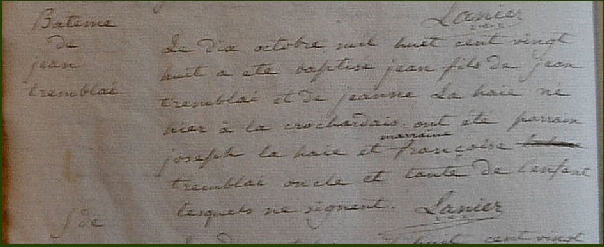 Lanier
Bateme
de
jean
tremblai
Le dix octobre mil huit cent vingt
huit a ete baptise jean fils de jean
tremblai et de jeanne la haie né
hier à la crochardais ont été parrain
marraine
joseph la haie et françoise
tremblai oncle et tante de l'enfant
lesquels ne signent. Lanier
cent vingt